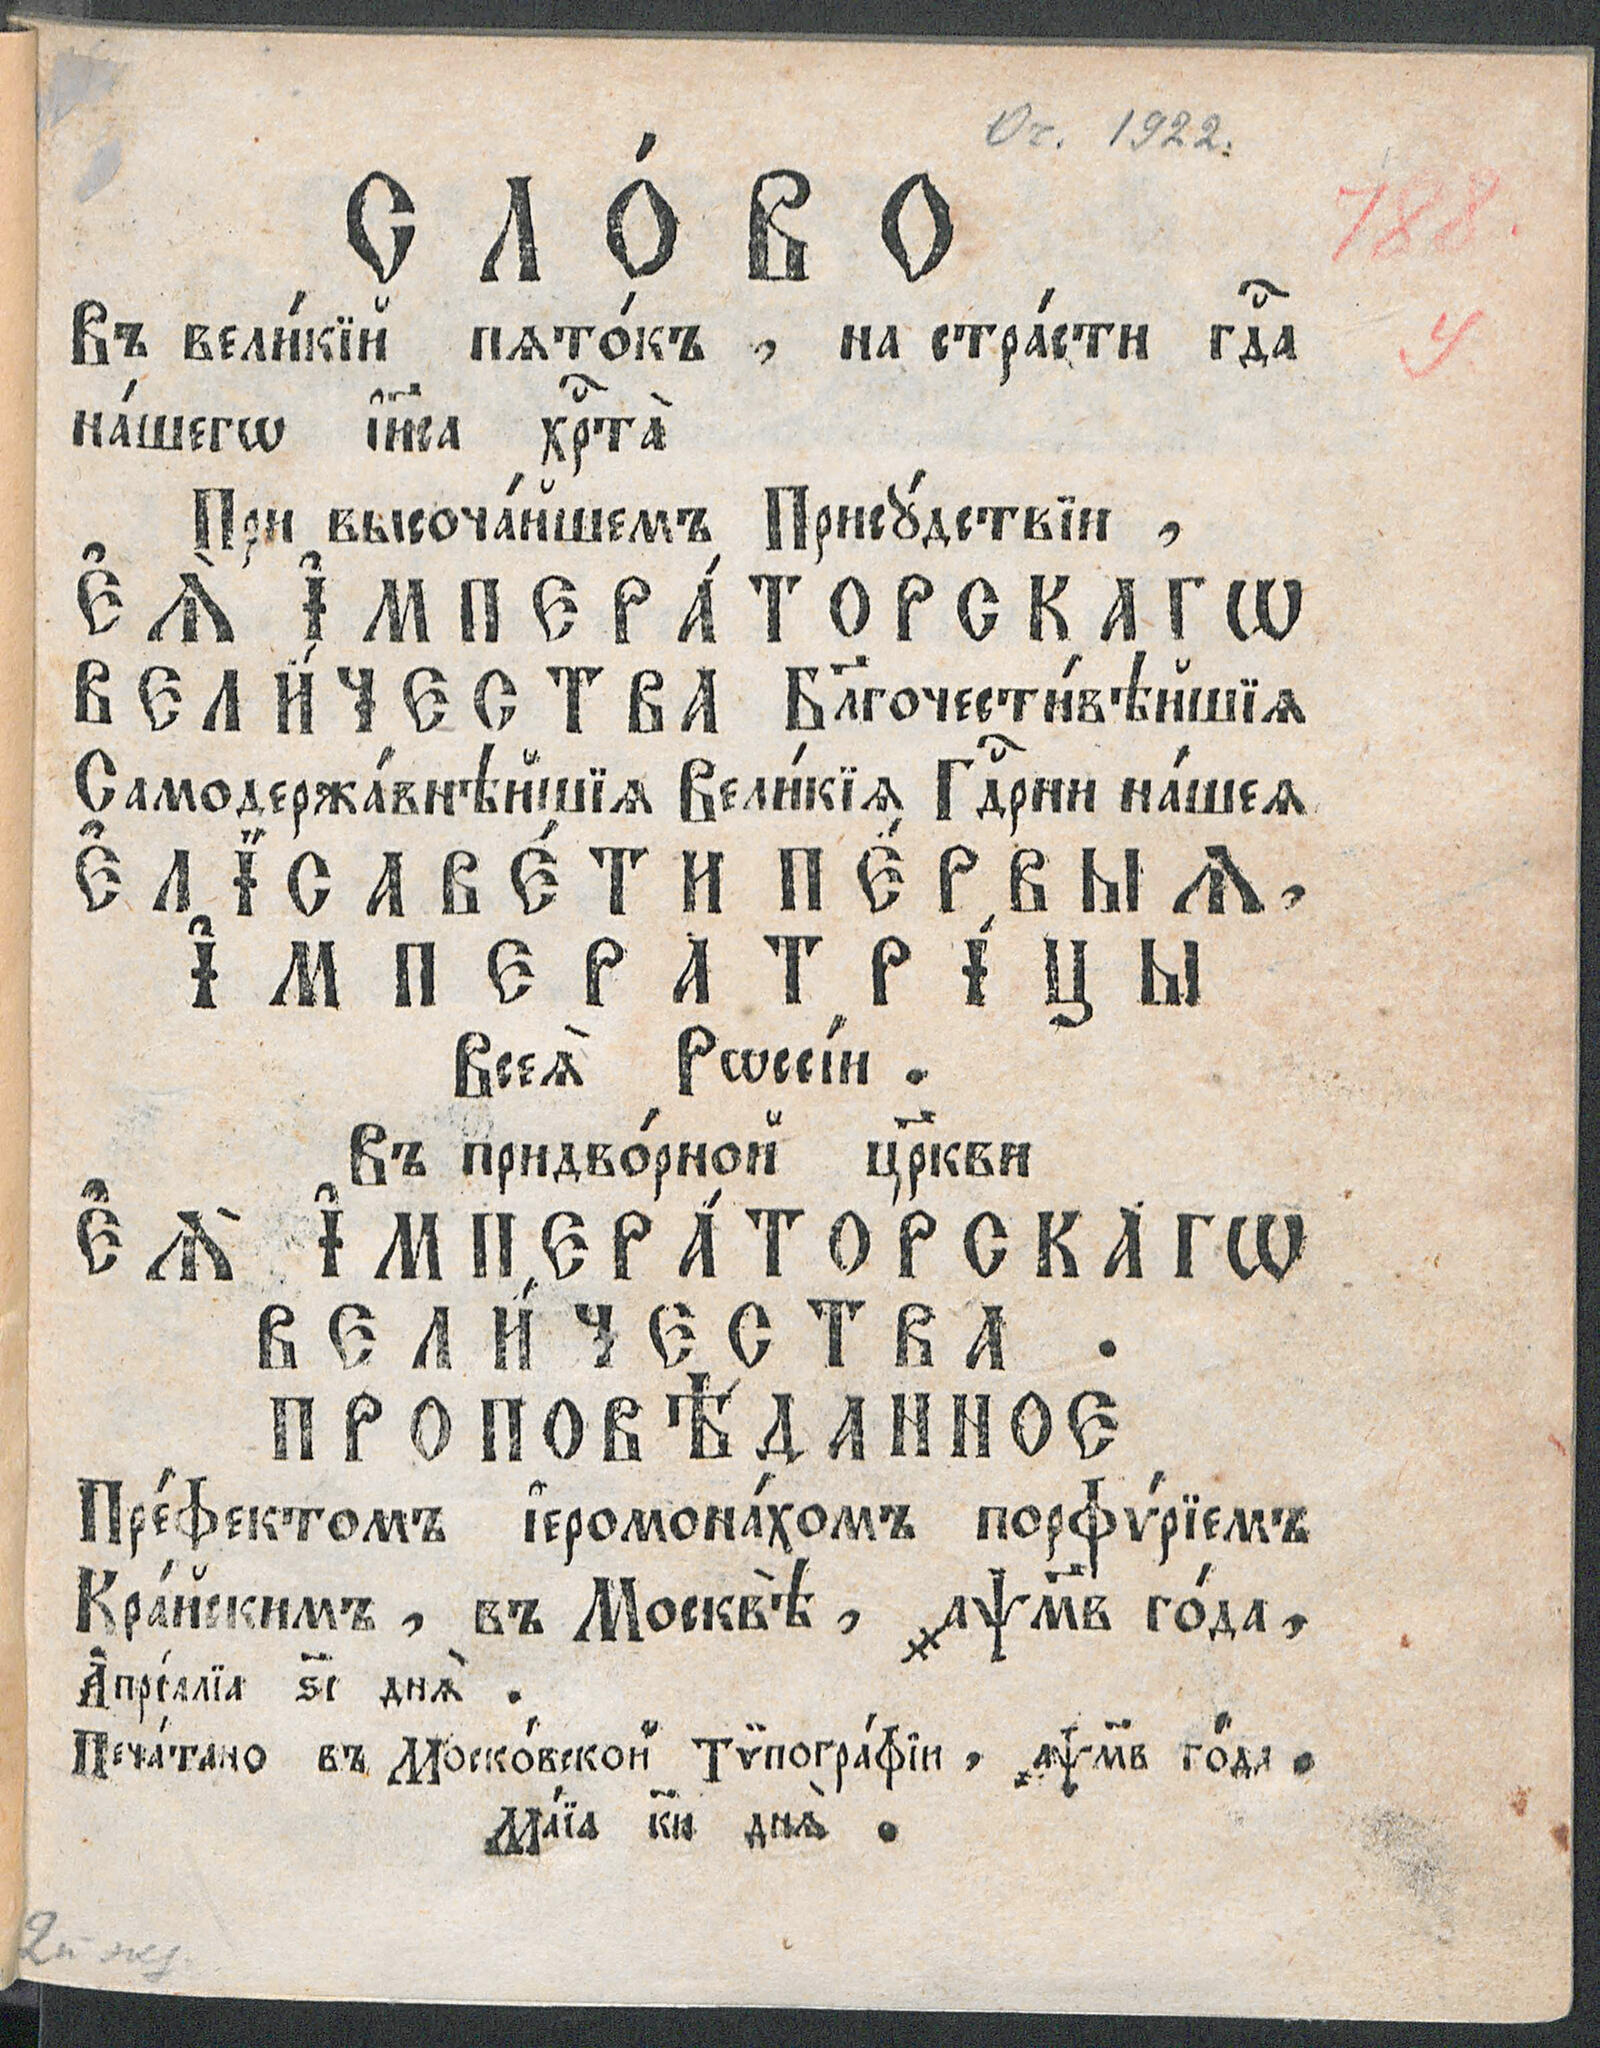 От. 1922.
СЛО́ВО
788.
Въ вели́кїй пѧто́къ, на стра́сти гдⷭ҇а
у
на́шегѡ і҆и҃са хрⷭ҇та̀
При высоча́йшемъ Присꙋ́дствїи,
Е҆Ѧ̀ І҆МПЕРА́ТОРСКАГѠ
ВЕЛИ́ЧЕСТВА Бл҃гочести́вѣйшїѧ
Самодержа́внѣйшїѧ Вели́кїѧ Гдⷭ҇рни на́шеѧ
Е҆ЛЇСАВЕ́ТИ ПЕ́РВЫѦ,
І҆МПЕРАТРІ́ЦЫ
Всеѧ̀ Рѡссі́и.
Въ придво́рной цр҃кви
Е҆Ѧ̀ І҆МПЕРА́ТОРСКАГѠ
ВЕЛИ́ЧЕСТВА.
ПРОПОВѢ́ДАННОЕ
Пре́фектомъ і҆еромона́хомъ порфѵ́рїемъ
Кра́йскимъ, въ Москвѣ̀, ҂аѱм҃в го́да,
А҆прі́ллїа ѕ҃і днѧ̀.
Печа́тано въ Моско́вской Тѷпогра́фїи, ҂аѱм҃в го́да.
Ма́їа к҃и днѧ̀.